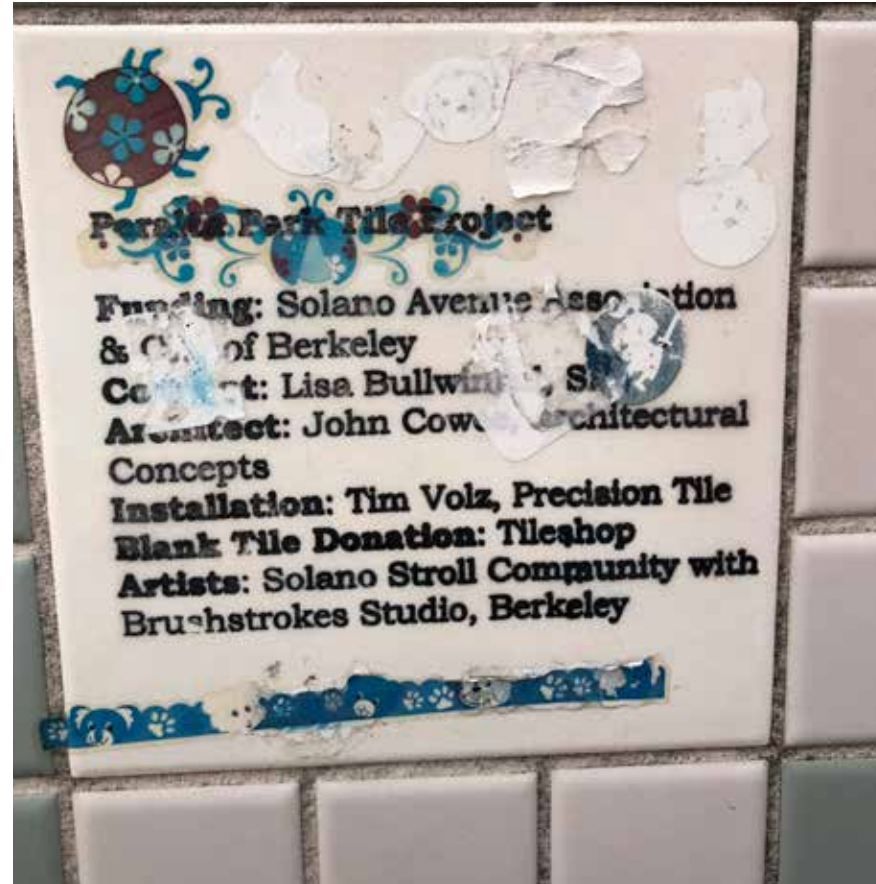 Peralta Park Tile Project
Funding: Solano Avenue Association
& City of Berkeley
Concept: Lisa
Architect: John Architectural
Concepts
Installation: Tim Volz, Precision Tile
Blank Tile Donation: Tileshop
Artists: Solano Stroll Community with
Brushstrokes Studio, Berkeley